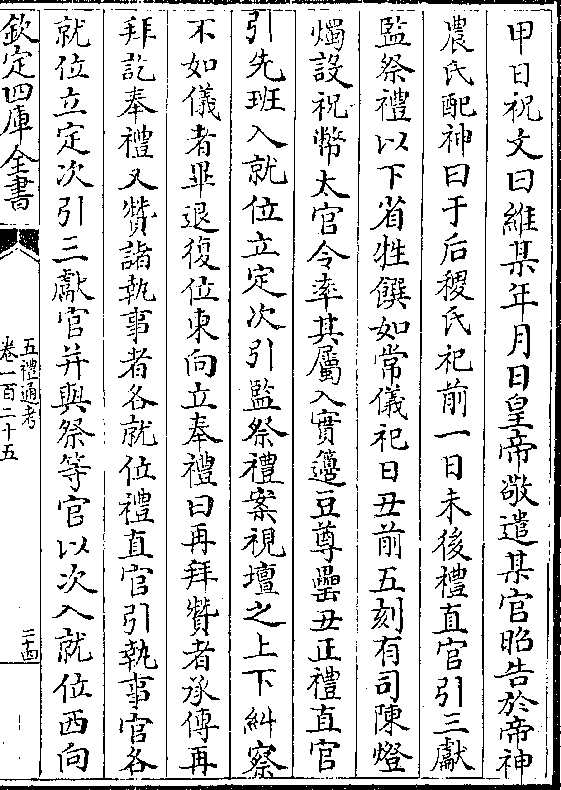 甲日祝文曰維某年月日皇帝敬遣某官昭告於帝神
農氏配神曰于后稷氏祀前一日未後禮直官引三獻
監祭禮以下省牲饌如常儀祀日丑前五刻有司陳燈
燭設祝幣太官令率其屬入實籩豆尊罍丑正禮直官
引先班入就位立定次引監祭禮案視壇之上下糾察
不如儀者畢退復位東向立奉禮曰再拜贊者承傳再
拜訖奉禮又贊諸執事者各就位禮直官引執事官各
就位立定次引三獻官并與祭等官以次入就位西向
欽定四庫全書
五禮通考
卷一百二十五
二十四